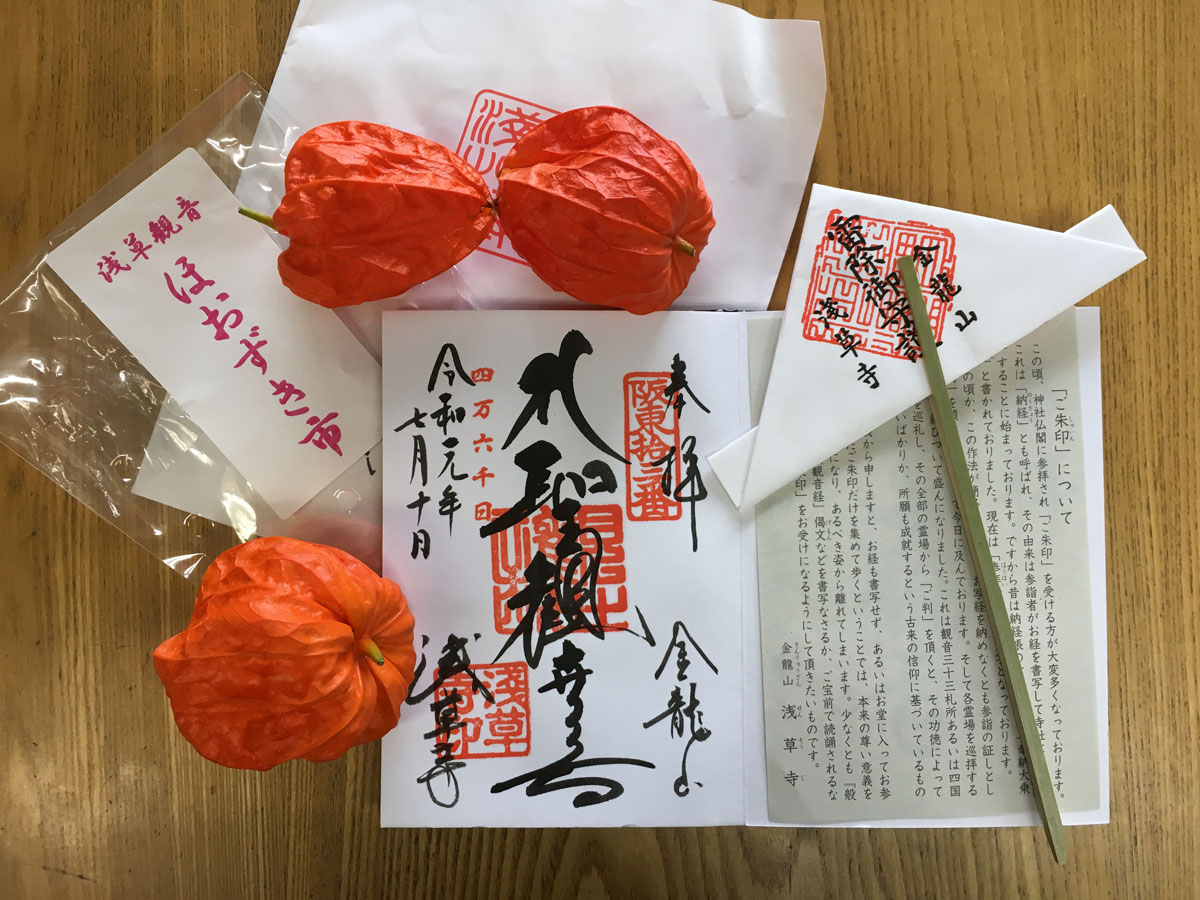 浅草観音
ほおずき市
金龍山
雷除御守護
浅草寺
奉拝
阪東拾三番
金龍山
聖観
四万六千日
令和元年
七月十日
浅草寺
浅草
寺印
「ご朱印」について
この頃、神社仏閣に参拝され「ご朱印」を受ける方が大変多くなっております。
これは「納経」とも呼ばれ、その由来は参詣者がお経を書写して寺社に
することに始まっております。ですから昔は納経帳の
と書かれておりました。現在は「奉
お写経を納めなくとも参詣の証しとし
の頃か、この作法が
て今日に及んでおります。そして各霊場を巡拝する
ついて盛んになりました。これは観音三十三札所あるいは四国
を巡礼し、その全部の霊場から「ご判」を頂くと、その功徳によって
いばかりか、所願も成就するという古来の信仰に基づいているもの
から申しますと、お経も書写せず、あるいはお堂に入ってお参
ご朱印だけを集めて歩くということでは、本来の尊い意義を
になり、あるべき姿から離れてしまいます。少なくとも『般
観音経』偈文などを書写なさるか、ご宝前で読誦されるな
印」をお受けになるようにして頂きたいものです。
金龍山 浅草寺